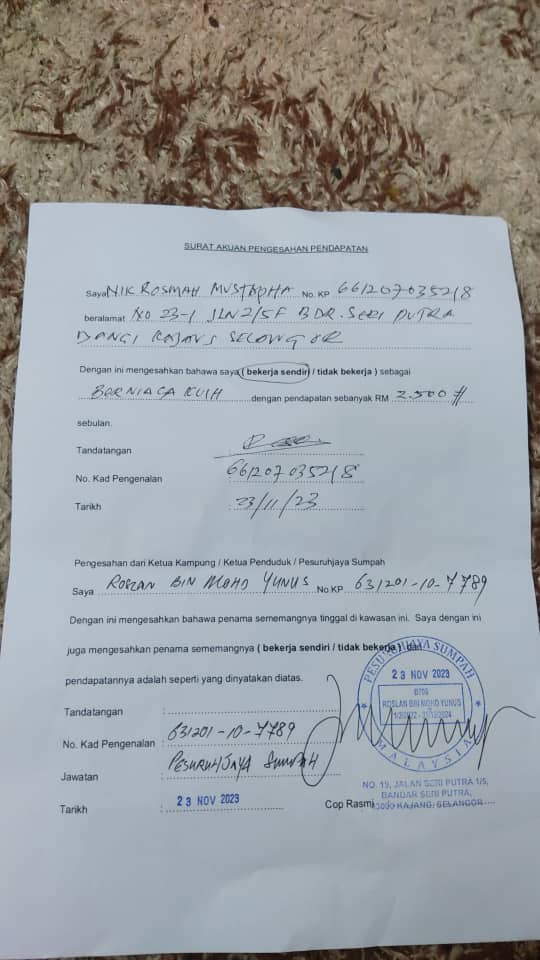 SURAT AKUAN PENGESAHAN PENDAPATAN
Saya NIK ROSMAH MUSTAPHA No. KP 661207035218
beralamat NO 23-1 JLN 2/5F BDR. SERI PUTRA
BANGI KAJANG SELANGOR
Dengan ini mengesahkan bahawa saya ( bekerja sendiri / tidak bekerja ) sebagai
BERNIAGA KUIH dengan pendapatan sebanyak RM 2.500
sebulan.
Tandatangan :
No. Kad Pengenalan : 661207035218
Tarikh : 23/11/23
Pengesahan dari Ketua Kampung / Ketua Penduduk / Pesuruhjaya Sumpah
Saya ROSLAN BIN MOHD YUNUS No KP 631201-10-7789
Dengan ini mengesahkan bahawa penama sememangnya tinggal di kawasan ini. Saya dengan ini
juga mengesahkan penama sememangnya ( bekerja sendiri / tidak bekerja ) dan
pendapatannya adalah seperti yang dinyatakan diatas.
Tandatangan :
No. Kad Pengenalan : 631201-10-7789
Jawatan : PESURUHJAYA SUMPAH
Tarikh : 23 NOV 2023
Cop Rasmi
PESURUHJAYA SUMPAH
23 NOV 2023
ROSLAN BIN MOHD YUNUS
MALAYSIA
NO. 19, JALAN SERI PUTRA 1/5,
BANDAR SERI PUTRA,
43000 KAJANG, SELANGOR